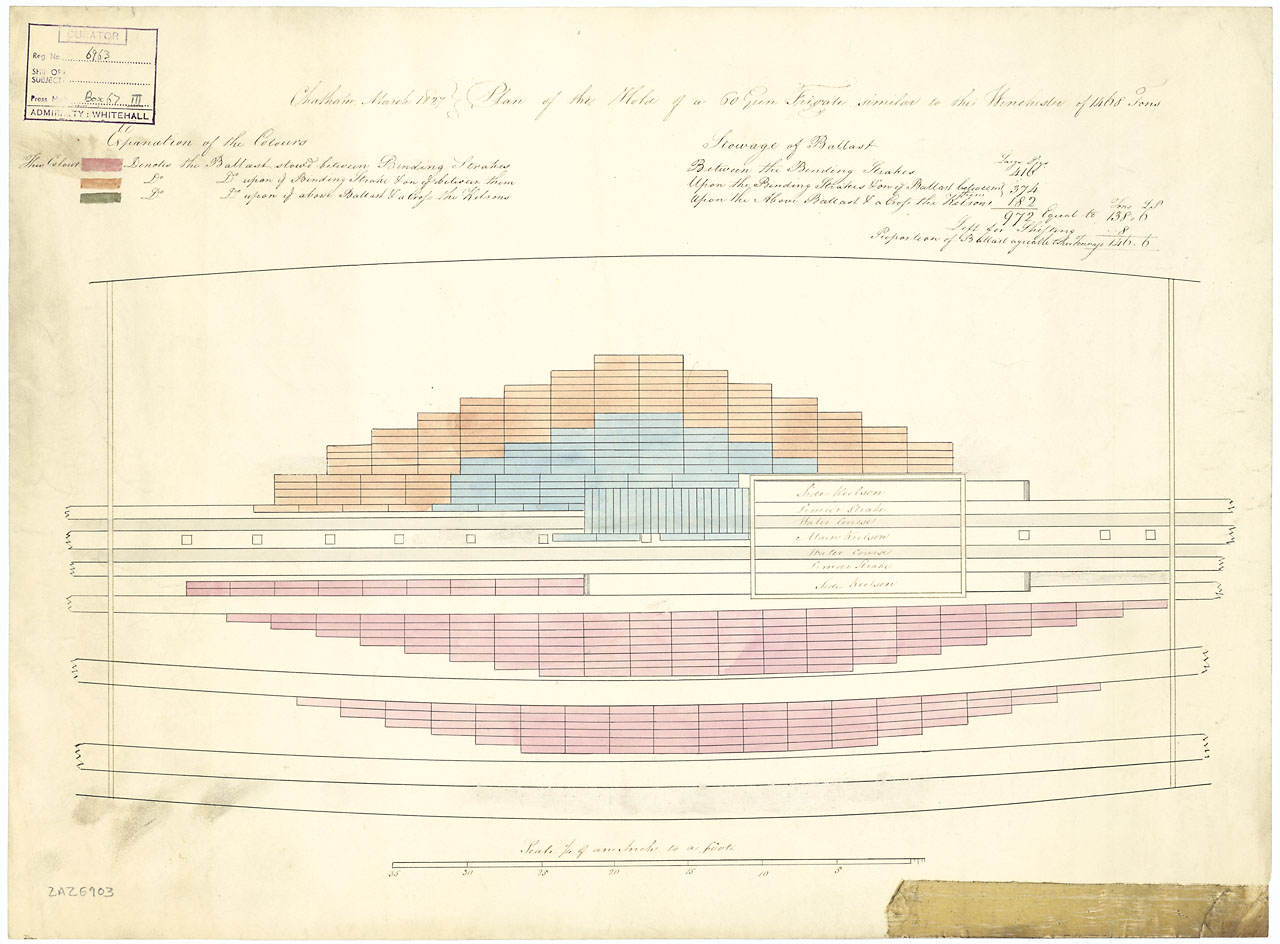 CURATOR
Reg. No. 6963
SHIP OR
SUBJECT
Press Mark Box 57 III
ADMIRALTY: WHITEHALL
Chatham March 1827 Plan of the Hold of a 60 Gun Frigate similar to the Winchester of 1468 Tons
Expanation of the Colours
This Colour Denotes the Ballast stow'd between Binding Strakes
Do Do upon ye Binding Strake & on ye between them
Do Do upon ye above Ballast & across the Kelsons
Stowage of Ballast
Large Pigs
Between the Binding Strakes 416
Upon the Binding Strakes & on ye Ballast between them 374
Upon the Above Ballast & across the Kelsons 182
Tons
972 Equal to 138.6
Left for Shifting 8
Proportion of Ballast agreeable to the Tonnage 146.6
Side Keelson
Limber Strake
Water Course
Main Keelson
Water Course
Limber Strake
Side Keelson
Scale ¼ of an Inch to a foot
35 30 25 20 15 10 5
ZAZ6903